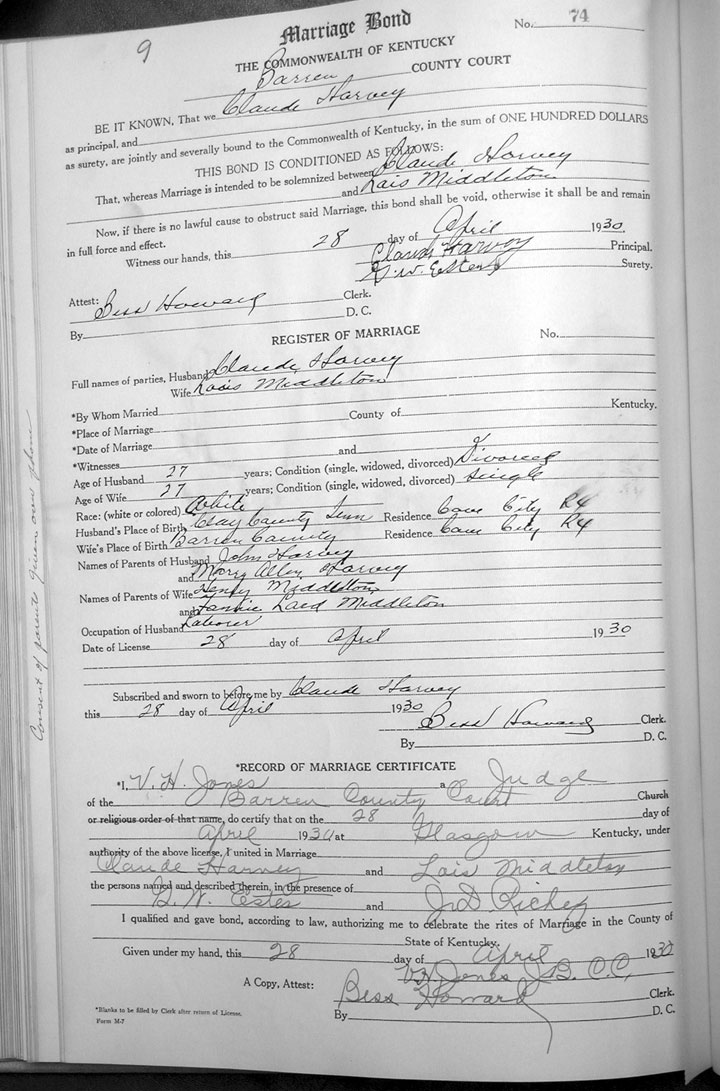 9
Marriage Bond No. 74
THE COMMONWEALTH OF KENTUCKY
Barren COUNTY COURT
BE IT KNOWN, That we Claude Harvey
as principal, and
as surety, are jointly and severally bound to the Commonwealth of Kentucky, in the sum of ONE HUNDRED DOLLARS
THIS BOND IS CONDITIONED AS FOLLOWS:
That, whereas Marriage is intended to be solemnized between Claude Harvey
and Lois Middleton
Now, if there is no lawful cause to obstruct said Marriage, this bond shall be void, otherwise it shall be and remain
in full force and effect.
Witness our hands, this 28 day of April 1930.
Claude Harvey Principal.
G. W. Estes Surety.
Attest: Bess Howard Clerk.
By D. C.
REGISTER OF MARRIAGE No.
Full names of parties, Husband Claude Harvey
Wife Lois Middleton
*By Whom Married County of Kentucky.
*Place of Marriage
*Date of Marriage
*Witnesses and
Age of Husband 27 years; Condition (single, widowed, divorced) Divorced
Age of Wife 27 years; Condition (single, widowed, divorced) Single
Race: (white or colored) White
Husband's Place of Birth Clay County Tenn Residence Cave City R4
Wife's Place of Birth Barren County Residence Cave City R4
Names of Parents of Husband John Harvey
and Mary Allen Harvey
Names of Parents of Wife Henry Middleton
and Fannie Middleton
Occupation of Husband Laborer
Date of License 28 day of April 1930
Subscribed and sworn to before me by Claude Harvey
this 28 day of April 1930
Bess Howard Clerk.
By D. C.
*RECORD OF MARRIAGE CERTIFICATE
*I, V. H. Jones a Judge
of the Barren County Court Church
or religious order of that name, do certify that on the 28 day of
April 1930 at Glasgow Kentucky, under
authority of the above license, I united in Marriage
Claude Harvey and Lois Middleton
the persons named and described therein, in the presence of
G. W. Estes and J. D. Richey
I qualified and gave bond, according to law, authorizing me to celebrate the rites of Marriage in the County of
State of Kentucky.
Given under my hand, this 28 day of April 1930
V. H. Jones J. B. C. C.
A Copy, Attest: Bess Howard Clerk.
By D. C.
*Blanks to be filled by Clerk after return of License.
Form M-7
Consent of parents given over phone